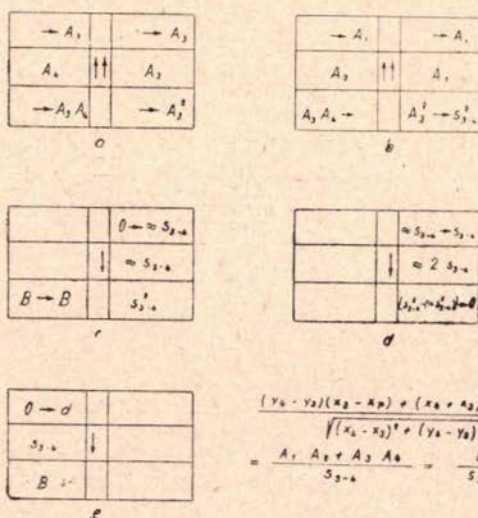 → A₁ → A₃
A₄ ↑↑ A₂
→ A₃ A₄ → A₃²
a
→ A₁ → A₁
A₂ ↑↑ A₁
A₃ A₄ → A₃² → S²₃₋₄
b
0 → ≈ S₃₋₄
↓ ≈ S₃₋₄
B → B S²₃₋₄
c
≈ S₃₋₄ → S₃₋₄
↓ ≈ 2 S₃₋₄
→ 0
d
0 → d
S₃₋₄ ↓
B
(y₄ - y₃)(x₃ - xₚ) + (x₄ + x₃)
√(x₄ - x₃)² + (y₄ - y₃)
= A₁ A₂ + A₃ A₄ / S₃₋₄ =